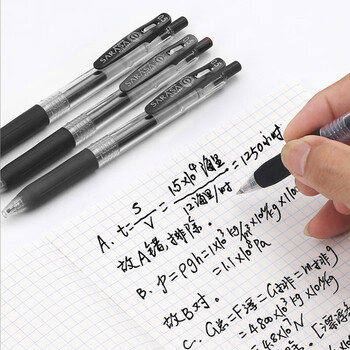 SARASA
SARASA
SARASA
A. t = S/V = 1.5×10⁴海里/12海里/时 = 1250小时
故A错,排除.
B. P=ρgh=1×10³kg/m³×10N/kg×11
=1.1×10⁸Pa
故B对.
C. G总=F浮=G排=m排g
=4800×10³kg×10N/kg
=4.8×10⁷N